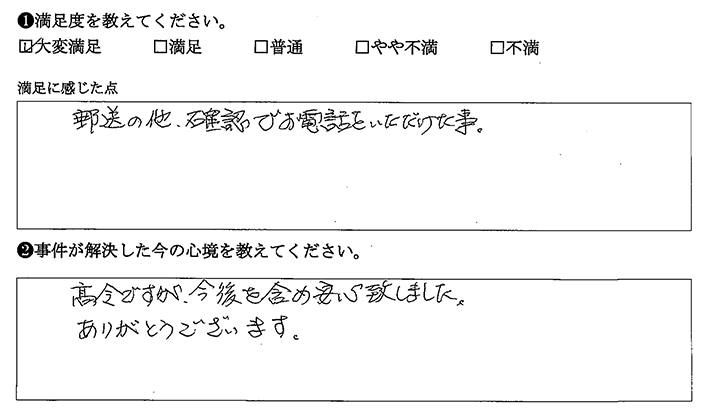 ❶満足度を教えてください。
☑大変満足 □満足 □普通 □やや不満 □不満
満足に感じた点
郵送の他、確認でお電話をいただけた事。
❷事件が解決した今の心境を教えてください。
高令ですが、今後を含め安心致しました。
ありがとうございます。